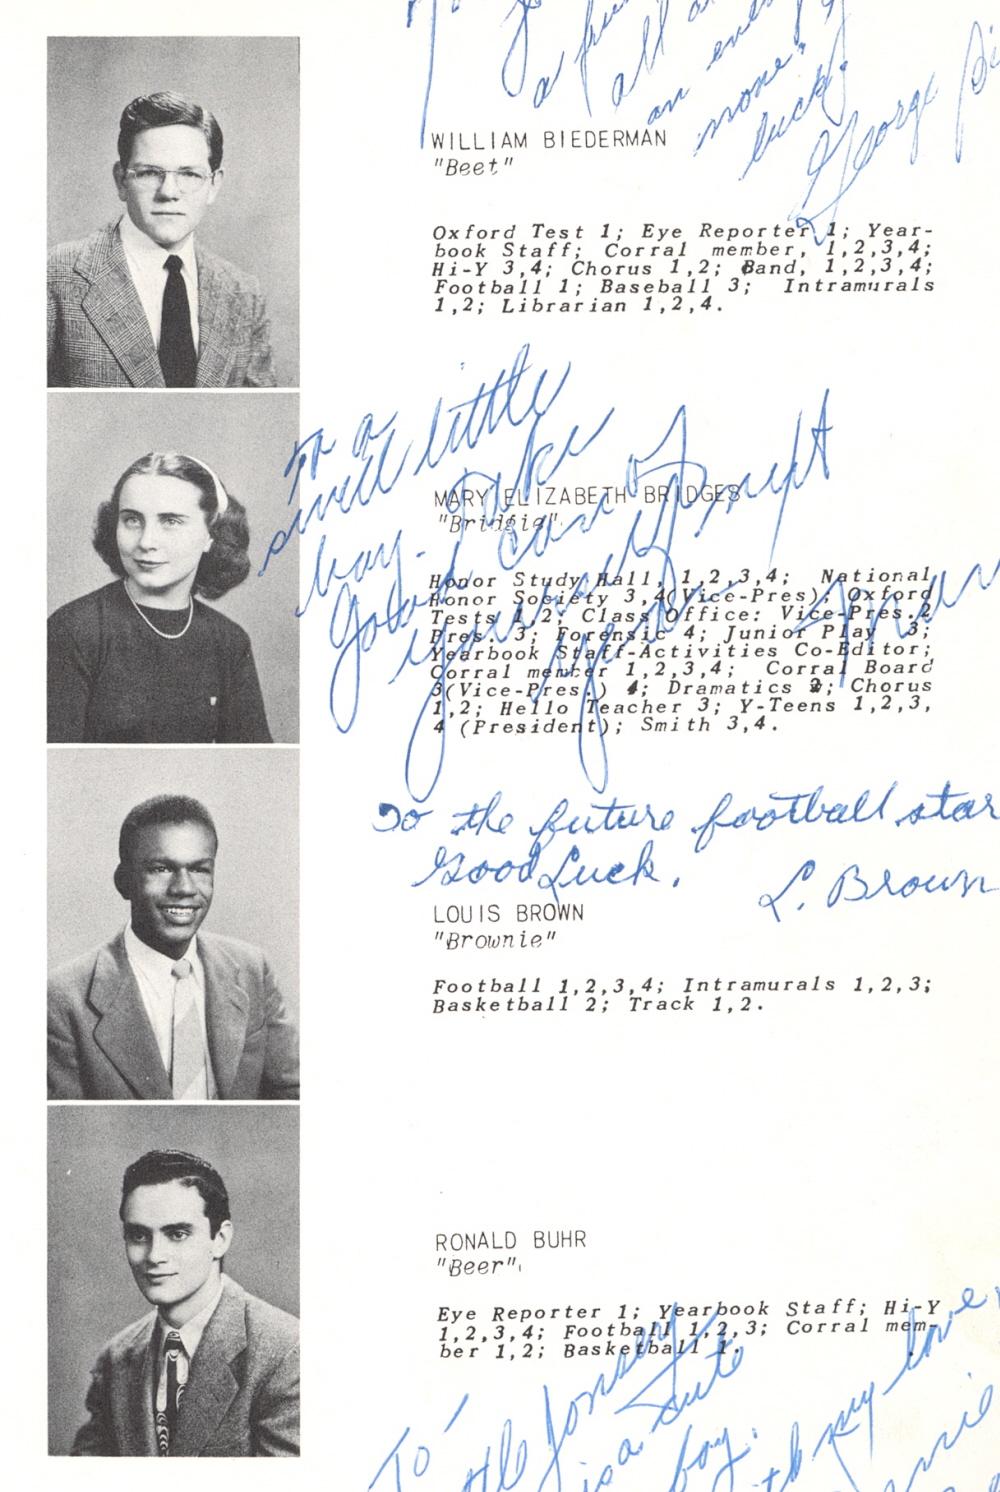 a
all
an
more.
luck.
George
WILLIAM BIEDERMAN
"Beet"
Oxford Test 1; Eye Reporter 1; Year-
book Staff; Corral member, 1,2,3,4;
Hi-Y 3,4; Chorus 1,2; Band, 1,2,3,4;
Football 1; Baseball 3; Intramurals
1,2; Librarian 1,2,4.
To a
sweet little
boy. Take
Good care of
yourself
MARY ELIZABETH BRIDGES
Honor Study Hall, 1,2,3,4; National
Honor Society 3,4(Vice-Pres); Oxford
Tests 1,2; Class Office: Vice-Pres.2
Pres. 3; Forensic 4; Junior Play 3;
Yearbook Staff-Activities Co-Editor;
Corral member 1,2,3,4; Corral Board
3(Vice-Pres.) 4; Dramatics 2; Chorus
1,2; Hello Teacher 3; Y-Teens 1,2,3,
4 (President); Smith 3,4.
To the future football star
Good Luck.
L. Brown
LOUIS BROWN
"Brownie"
Football 1,2,3,4; Intramurals 1,2,3;
Basketball 2; Track 1,2.
RONALD BUHR
"Beer"
Eye Reporter 1; Yearbook Staff; Hi-Y
1,2,3,4; Football 1,2,3; Corral mem-
ber 1,2; Basketball 1.
To
Jonsey
is a cute
boy.
my love